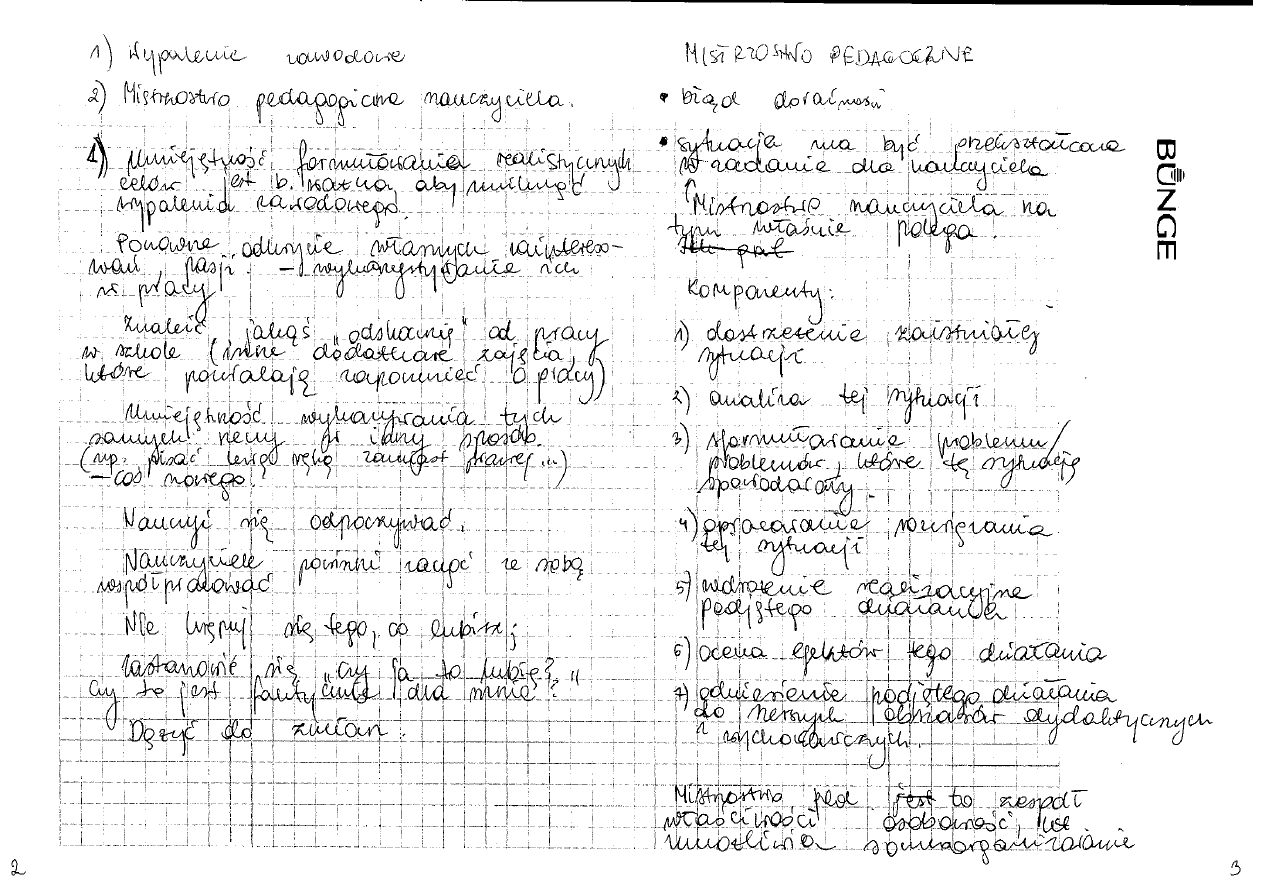 1) Wypalenie zawodowe
2) Mistrzostwo pedagogiczne nauczyciela.
1) Umiejętność formułowania realistycznych
celów jest b. ważna, aby uniknąć
wypalenia zawodowego.
Ponowne odkrycie własnych zaintereso-
wań, pasji – wykorzystywanie ich
w pracy
Znaleźć jakąś „odskocznię" od pracy
w szkole (inne dodatkowe zajęcia,
które pozwalają zapomnieć o pracy)
Umiejętność wykonywania tych
samych rzeczy w inny sposób.
(np. pisać lewą ręką zamiast prawej...)
– coś nowego.
Nauczyć się odpoczywać.
Nauczyciele powinni zacząć ze sobą
współpracować
Nie krępuj się tego, co lubisz;
Zastanowić się „czy ja to lubię?"
czy to jest faktycznie dla mnie?
Dążyć do zmian.
2
MISTRZOSTWO PEDAGOCZNE
• błąd doraźności
• sytuacja ma być przekształcona
w zadanie dla nauczyciela
Mistrzostwo nauczyciela na
tym właśnie polega.
Komponenty:
1) dostrzeżenie zaistniałej
sytuacji
2) analiza tej sytuacji
3) sformułowanie problemu/
problemów, które tę sytuację
spowodowały.
4) opracowanie rozwiązania
tej sytuacji
5) wdrożenie realizacyjne
podjętego działania
6) ocena efektów tego działania
7) odniesienie podjętego działania
do szerszych obszarów dydaktycznych
i wychowawczych.
Mistrzostwo ped jest to zespół
właściwości osobowość, kt
umożliwia samoorganizowanie
3
BUNGE